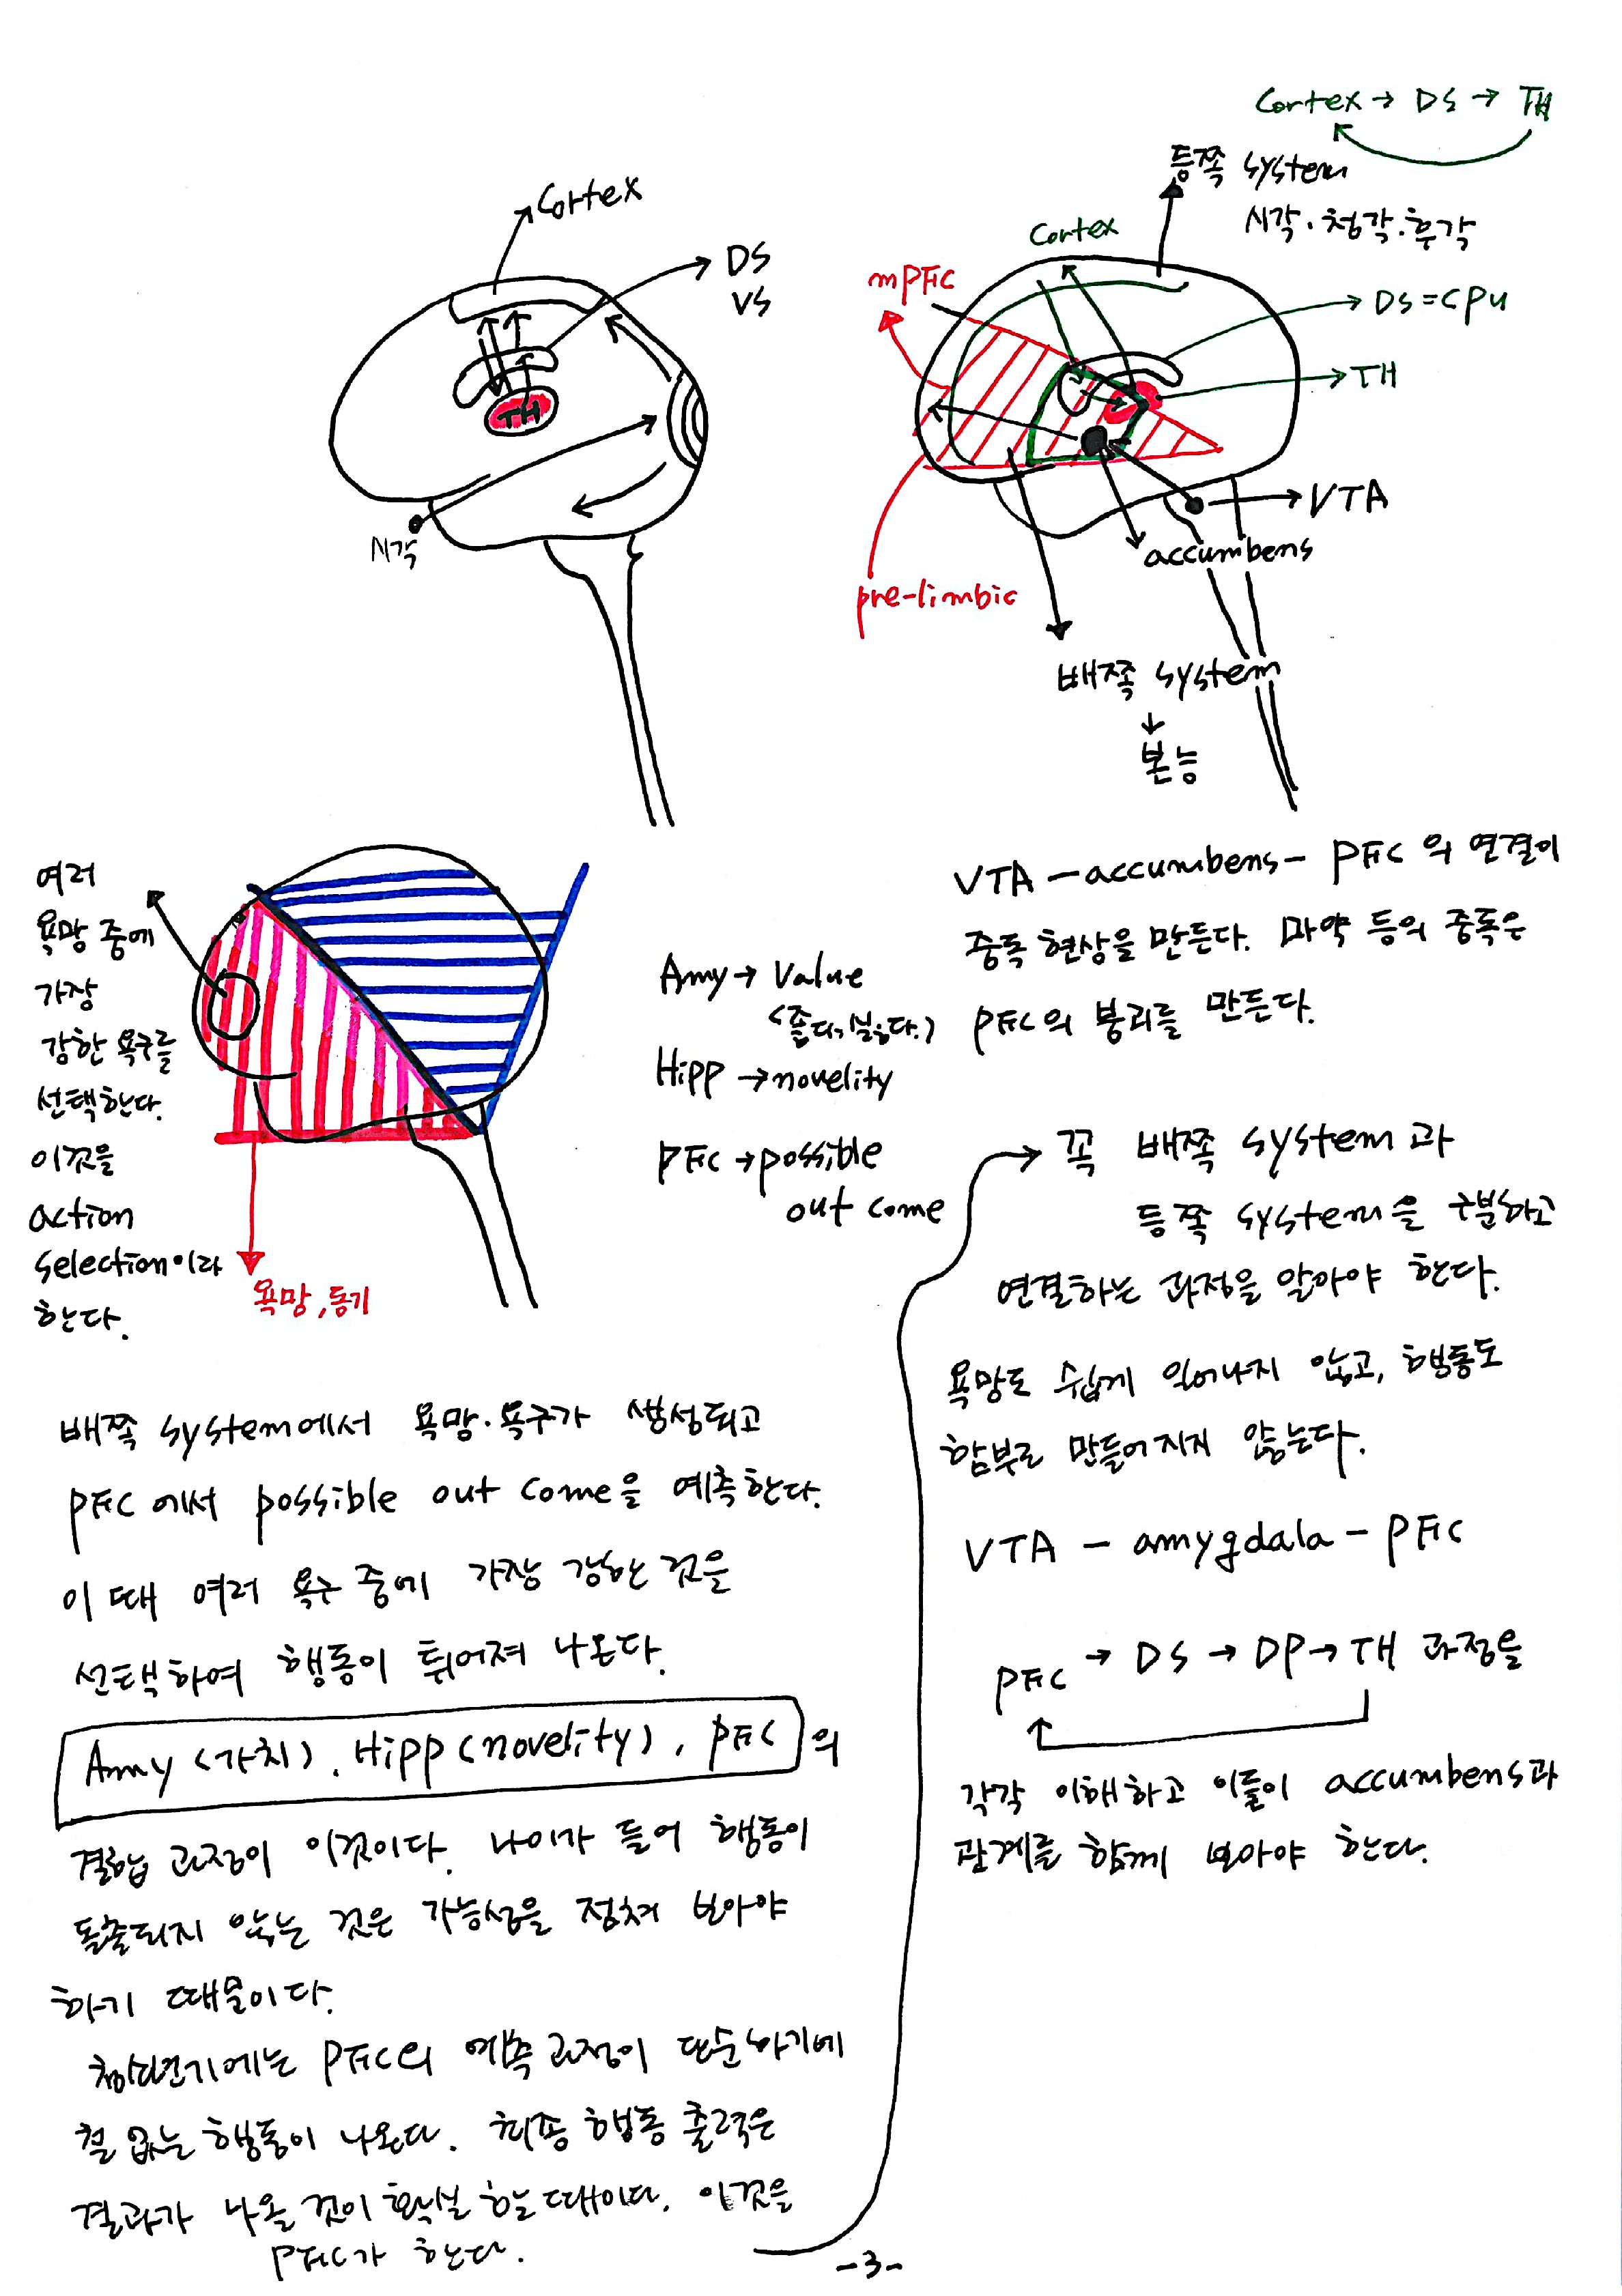 Cortex → DS → TH
등쪽 system
시각·청각·후각
Cortex
DS
VS
TH
시각
Cortex
mPFC
DS=CPU
TH
VTA
accumbens
pre-limbic
배쪽 system
↓
본능
여러
욕망 중에
가장
강한 욕구를
선택한다.
이것을
action
selection이라
한다.
욕망, 동기
Amy → Value
(좋다, 싫다.)
Hipp → novelity
PFC → possible
out come
배쪽 system에서 욕망·욕구가 생성되고
PFC에서 possible out come을 예측한다.
이 때 여러 욕구 중에 가장 강한 것을
선택하여 행동이 튀어져 나온다.
Amy (가치), Hipp (novelity), PFC의
결합 과정이 이것이다. 나이가 들어 행동이
돌출되지 않는 것은 가능성을 점쳐 보아야
하기 때문이다.
청소년기에는 PFC의 예측 과정이 단순하기에
철 없는 행동이 나온다. 최종 행동 출력은
결과가 나올 것이 확실 할 때이다. 이것을
PFC가 한다.
VTA - accumbens - PFC의 연결이
중독 현상을 만든다. 마약 등의 중독은
PFC의 붕괴를 만든다.
→ 꼭 배쪽 system과
등쪽 system을 구분하고
연결하는 과정을 알아야 한다.
욕망도 쉽게 일어나지 않고, 행동도
함부로 만들어지지 않는다.
VTA - amygdala - PFC
PFC → DS → DP → TH 과정을
각각 이해하고 이들이 accumbens과
관계를 함께 보아야 한다.
-3-